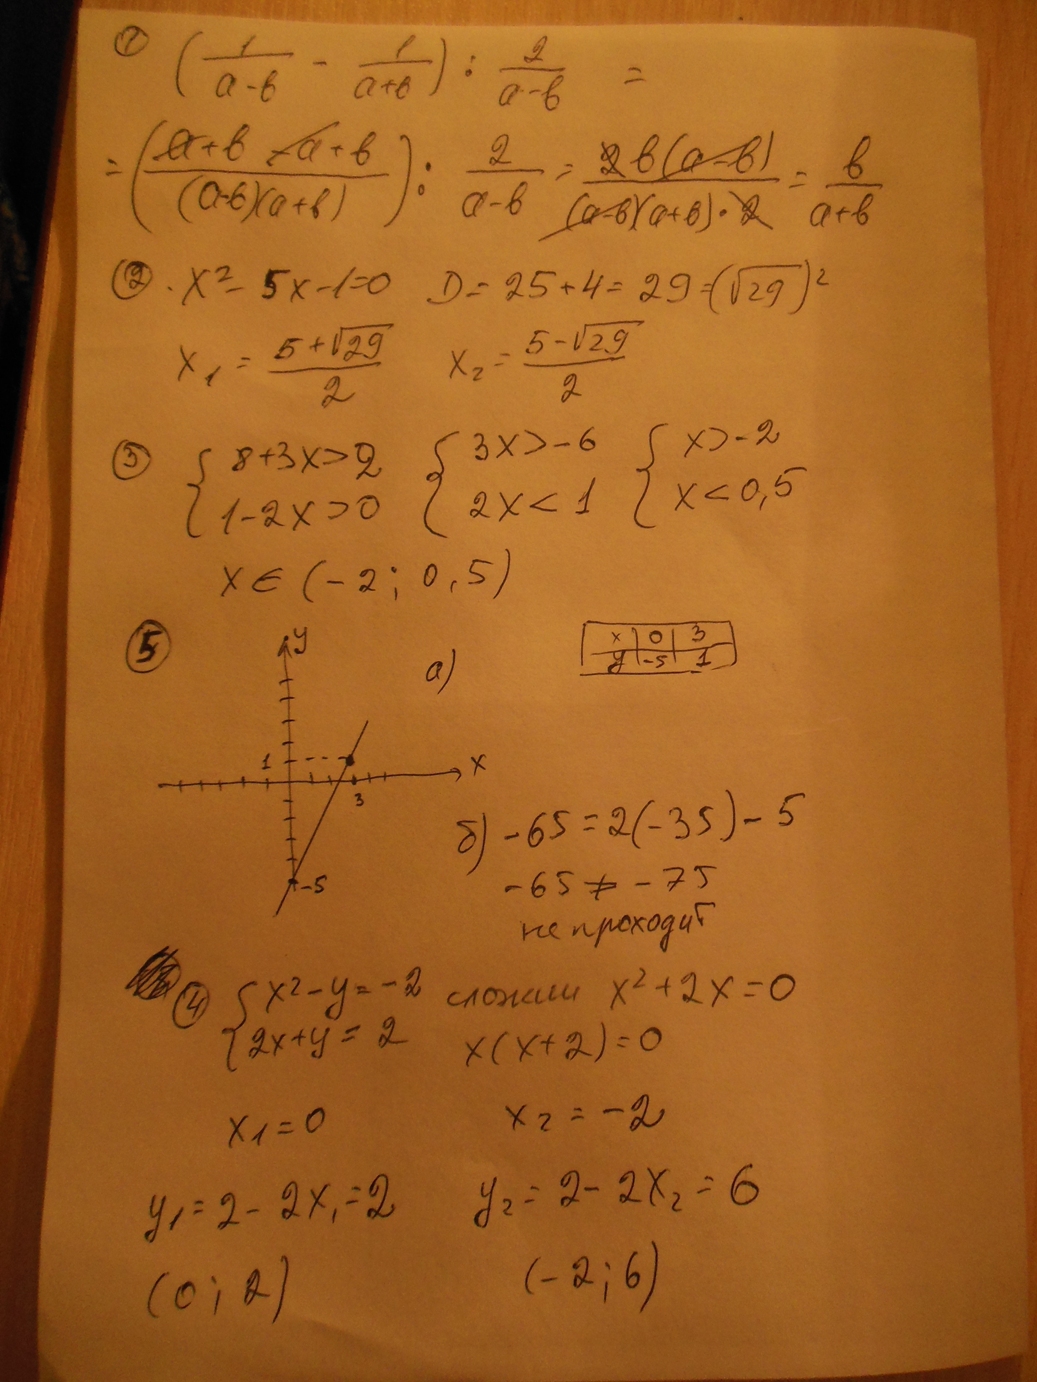 ① (1/(a-в) - 1/(a+в)) : 2/(a-в) =
= ((a+в -a+в)/((a-в)(a+в))) : 2/(a-в) = (2в(a-в))/((a-в)(a+в)·2) = в/(a+в)
② x² - 5x - 1 = 0 D = 25 + 4 = 29 = (√29)²
x₁ = (5+√29)/2 x₂ = (5-√29)/2
③ { 8+3x>2 { 3x>-6 { x>-2
{ 1-2x>0 { 2x<1 { x<0,5
x ∈ (-2; 0,5)
⑤ y а) x | 0 | 3
y | -5 | 1
1 x
3
-5
б) -65 = 2(-35) - 5
-65 ≠ -75
не проходит
④ { x² - y = -2 сложим x² + 2x = 0
{ 2x + y = 2 x(x+2) = 0
x₁ = 0 x₂ = -2
y₁ = 2 - 2x₁ = 2 y₂ = 2 - 2x₂ = 6
(0; 2) (-2; 6)